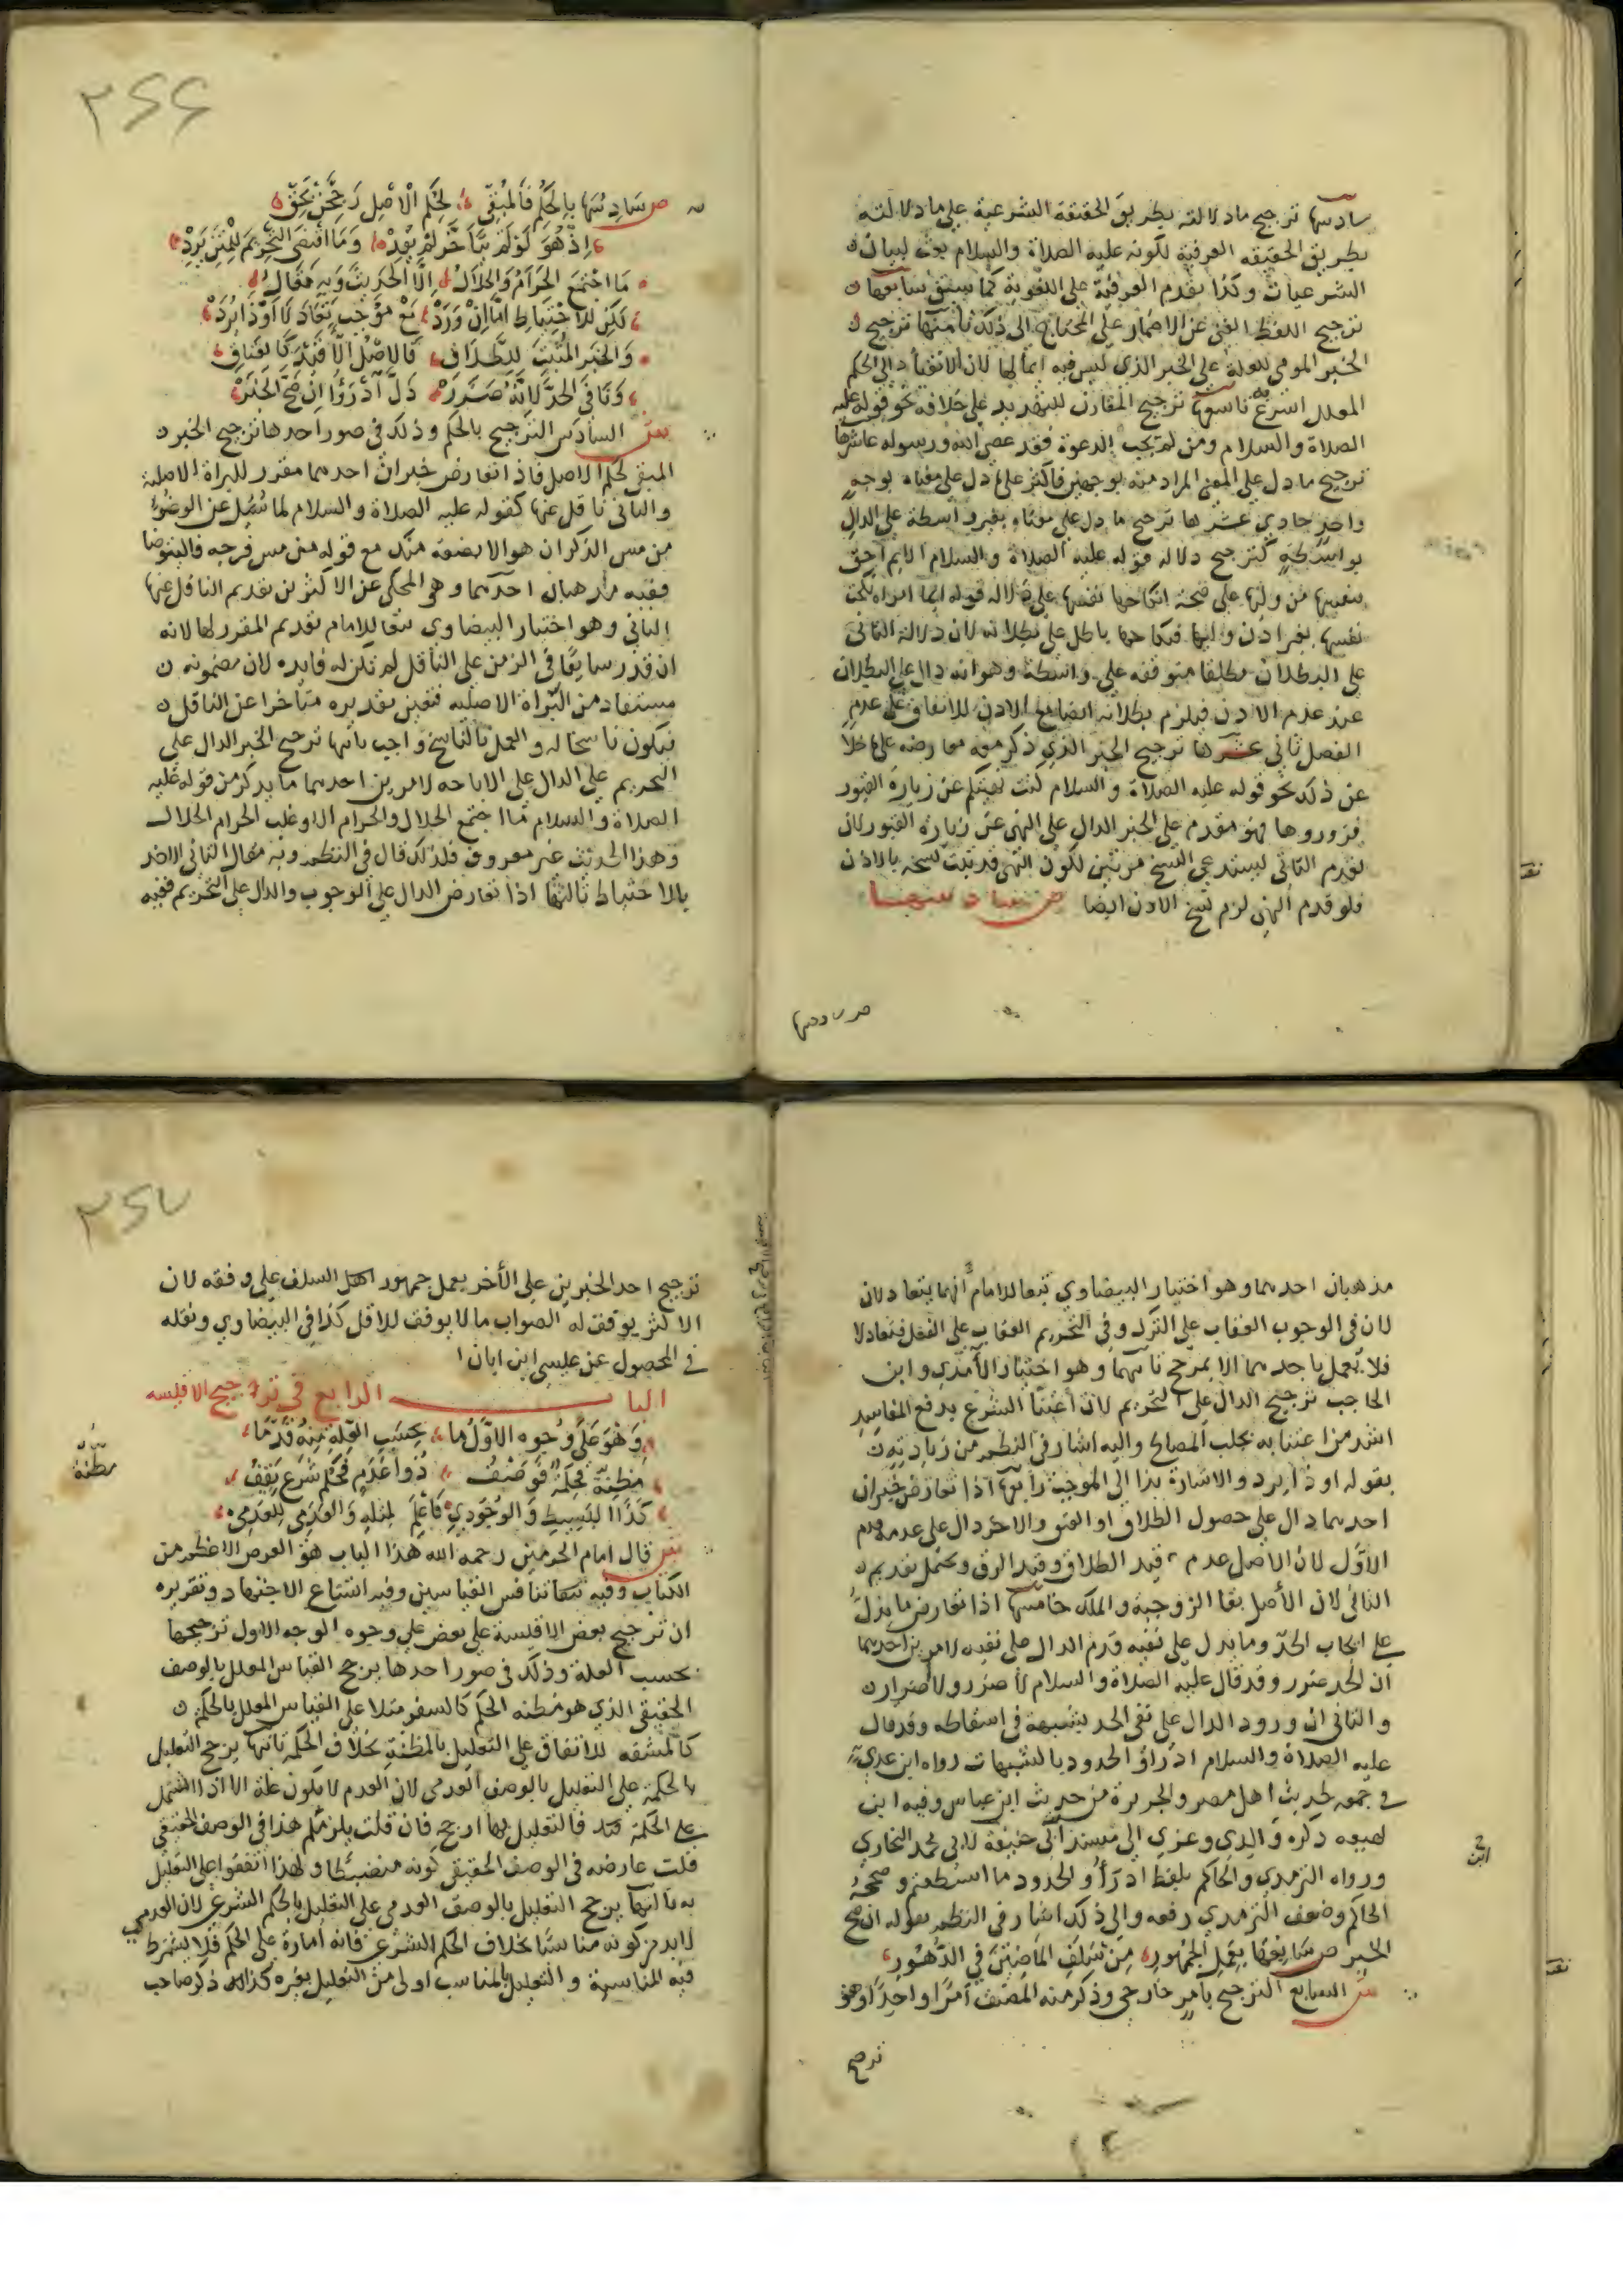 سادسها ترجيح ما دلالته بطريق الحقيقة الشرعية على ما دلالته
بطريق الحقيقه العرفية لكونه عليه الصلاة والسلام بعث لبيان
الشرعيات وكذا يقدم العرفية على اللغوية كما سبق سابعها
ترجيح اللفظ الغني عن الاضمار على المحتاج الى ذلك ثامنها ترجيح
الخبر المومي للعلة على الخبر الذي ليس فيه ايما لها لان الانقياد الى الحكم
المعلل اسرع تاسعها ترجيح المقارن للتهديد على خلافه نحو قوله عليه
الصلاة والسلام ومن لم يجب الدعوة فقد عصى الله ورسوله عاشرها
ترجيح ما دل على المعنى المراد منه بوجهين فاكثر على ما دل على معناه بوجه
واحد حادي عشرها ترجيح ما دل على معناه بغير واسطة على الدال
بواسطة كترجيح دلاله قوله عليه الصلاة والسلام الايم احق
بنفسها من وليها على صحة انكاحها نفسها على دلالة قوله ايما امراة نكحت
نفسها بغير اذن وليها فنكاحها باطل على بطلانه لان دلالة الثاني
على البطلان مطلقا متوقفه على واسطة وهو انه دال على البطلان
عند عدم الاذن فيلزم بطلانه ايضا مع الاذن للاتفاق على عدم
الفصل ثاني عشرها ترجيح الخبر الذي ذكر معه معارضه على ما خلا
عن ذلك نحو قوله عليه الصلاة والسلام كنت نهيتكم عن زيارة القبور
فزوروها فهو مقدم على الخبر الدال على النهي عن زيارة القبور لان
تقدم الثاني يستدعي النسخ مرتين لكون النهي قد ثبت نسخه بالاذن
فلو قدم النهي لزم نسخ الاذن ايضا ص سادسها
ص سادسها
٣٤٦
ص سادسها بالحكم فالمبقي لحكم الاصل رجحن بحق
اذ هو لو لم يتاخر لم يفد وما اقتضى التحريم للمثن يرد
ما اجتمع الحرام والحلال الا الحديث وبه مقال
لكن للاحتياط اما ان ورد مع موجب تعادلا او ذا يرد
والخبر المثبت للطلاق فالاصل الا قيد كالعتاق
ونافي الحد لانه ضرر دل ادرؤا ان صح الخبر
ش السادس الترجيح بالحكم وذلك في صور احدها ترجيح الخبر
المبقي لحكم الاصل فاذا تعارض خبران احدهما مقرر للبراة الاصلية
والثاني ناقل عنها كقوله عليه الصلاة والسلام لما سئل عن الوضوء
من مس الذكر ان هو الا بضعة منك مع قوله من مس فرجه فاليتوضا
ففيه مذهبان احدهما وهو المحكى عن الاكثرين تقديم الناقل عنها
الثاني وهو اختيار البيضاوي تبعا للامام تقديم المقرر لها لانه
ان قدر سابقا في الزمن على الناقل لم تكن له فايده لان مضمونه
مستفاد من البراة الاصليه فتعين تقديره متاخرا عن الناقل
فيكون ناسخا له والعمل بالناسخ واجب ثانيها ترجيح الخبر الدال على
التحريم على الدال على الاباحه لامرين احدهما ما يذكر من قوله عليه
الصلاة والسلام ما اجتمع الحلال والحرام الا وغلب الحرام الحلال
وهذا الحديث غير معروف فلذلك قال في النظم وبه مقال الثاني الاخذ
بالاحتياط ثالثها اذا تعارض الدال على الوجوب والدال على التحريم ففيه
مذهبان احدهما وهو اختيار البيضاوي تبعا للامام انهما يتعادلان
لان في الوجوب العقاب على الترك وفي التحريم العقاب على الفعل فتعادلا
فلا يعمل باحدهما الا بمرجح ثانيهما وهو اختيار الآمدي وابن
الحاجب ترجيح الدال على التحريم لان اعتنا الشرع بدفع المفاسد
اشد من اعتنا به بجلب المصالح واليه اشار في النظم من زيادته
بقوله او ذا يرد والاشارة بذا الى الموجب رابعها اذا تعارض خبران
احدهما دال على حصول الطلاق او العتق والاخر دال على عدمه قدم
الاول لان الاصل عدم قيد الطلاق وقيد الرق ويحتمل تقديم
الثاني لان الاصل بقا الزوجية والملك خامسها اذا تعارض ما يدل
على ايجاب الحد وما يدل على نفيه قدم الدال على نفيه لامرين احدهما
ان الحد ضرر وقد قال عليه الصلاة والسلام لا ضرر ولا ضرار
والثاني ان ورود الدال على نفي الحد شبهة في اسقاطه وقد قال
عليه الصلاة والسلام ادرؤا الحدود بالشبهات رواه ابن عدي
في جمعه لحديث اهل مصر والجزيرة من حديث ابن عباس وفيه ابن
لهيعه ذكره والدي وعزي الى مسند ابى حنيفة لابي محمد البخاري
ورواه الترمذي والحاكم بلفظ ادرأو الحدود ما استطعتم وصححه
الحاكم وضعف الترمذي رفعه والى ذلك اشار في النظم بقوله ان صح
الخبر ص سابعها بعمل الجمهور من سلف الماضين في الدهور
ش السابع الترجيح بامر خارجي وذكر منه المصنف امرا واحدا وهو
ترجيح
٣٤٧
ترجيح احد الخبرين على الآخر بعمل جمهور اهل السلف على وفقه لان
الاكثر يوفق له الصواب ما لا يوفق للاقل كذا في البيضاوي ونقله
في المحصول عن عيسى ابن ابان
الباب الرابع في ترجيح الاقيسه
وهو على وجوه الاول ما بحسب العلة منه قدما
مظنة فحكمة فوصف ذو عدم فحكم شرع يقف
كذا البسيط والوجودي فاعلم لمثله والعدمي للعدمي
مظنة
ش قال امام الحرمين رحمه الله هذا الباب هو الغرض الاعظم من
الكتاب وفيه تنافس القياسين وفيه اتساع الاجتهاد وتقريره
ان ترجيح بعض الاقيسة على بعض على وجوه الوجه الاول ترجيحها
بحسب العلة وذلك في صور احدها يرجح القياس المعلل بالوصف
الحقيقي الذي هو مظنه الحكم كالسفر مثلا على القياس المعلل بالحكم
كالمشقه للاتفاق على التعليل بالمظنة بخلاف الحكمة ثانيها يرجح التعليل
بالحكمة على التعليل بالوصف العدمى لان العدم لا يكون علة الا ان اشتمل
على الحكمة فالتعليل بها ارجح فان قلت يلزمكم هذا في الوصف الحقيقي
قلت عارضه في الوصف الحقيقي كونه منضبطا ولهذا اتفقوا على التعليل
به ثالثها يرجح التعليل بالوصف العدمى على التعليل بالحكم الشرعي لان العدمي
لا بد من كونه مناسبا بخلاف الحكم الشرعي فانه امارة على الحكم فلا يشترط
فيه المناسبة والتعليل بالمناسب اولى من التعليل بغيره كذلك ذكر صاحب